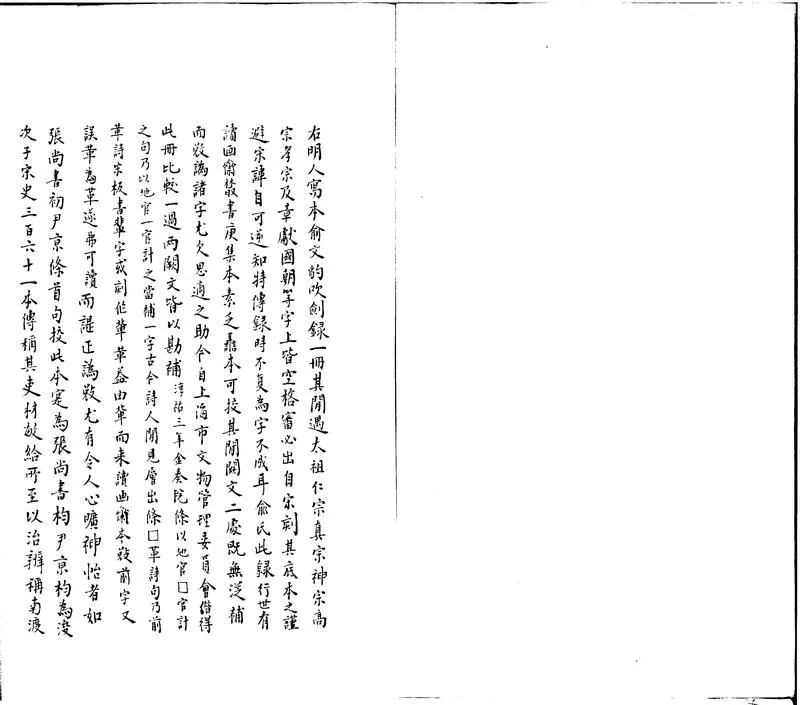 右明人寫本俞文豹吹劍録一冊其閒遇太祖仁宗真宗神宗高
宗孝宗及章獻國朝等字上皆空格審必出自宋刻其底本之謹
避宗諱自可逆知特傳録時不复為字不成耳俞氏此録行世有
讀画齋叢書庚集本素乏善本可挍其閒闕文二處既無從補
而敚譌諸字尤欠思適之助今自上海市文物管理委員會借得
此冊比較一過兩闕文皆以勘補淳祐三年金奏院條以地官□官計
之句乃以地官一官計之當補一字古今詩人閒見層出條□革詩句乃前
輩詩宋板書輩字或刻作軰革葢由軰而来讀画齋本敚前字又
誤軰為革遂弗可讀而諟正譌敚尤有令人心曠神怡者如
張尚書初尹京條首句挍此本寔為張尚書枃尹京枃為浚
次子宋史三百六十一本傳稱其吏材敏給所至以治辨稱南渡